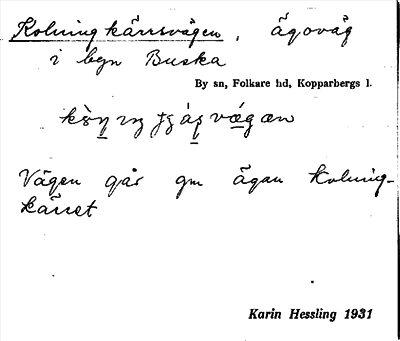 Kolningkärrsvägen, ägoväg
i byn Buska
By sn, Folkare hd, Kopparbergs l.
Vägen går gm ägan Kolning-
kärret
Karin Hessling 1931